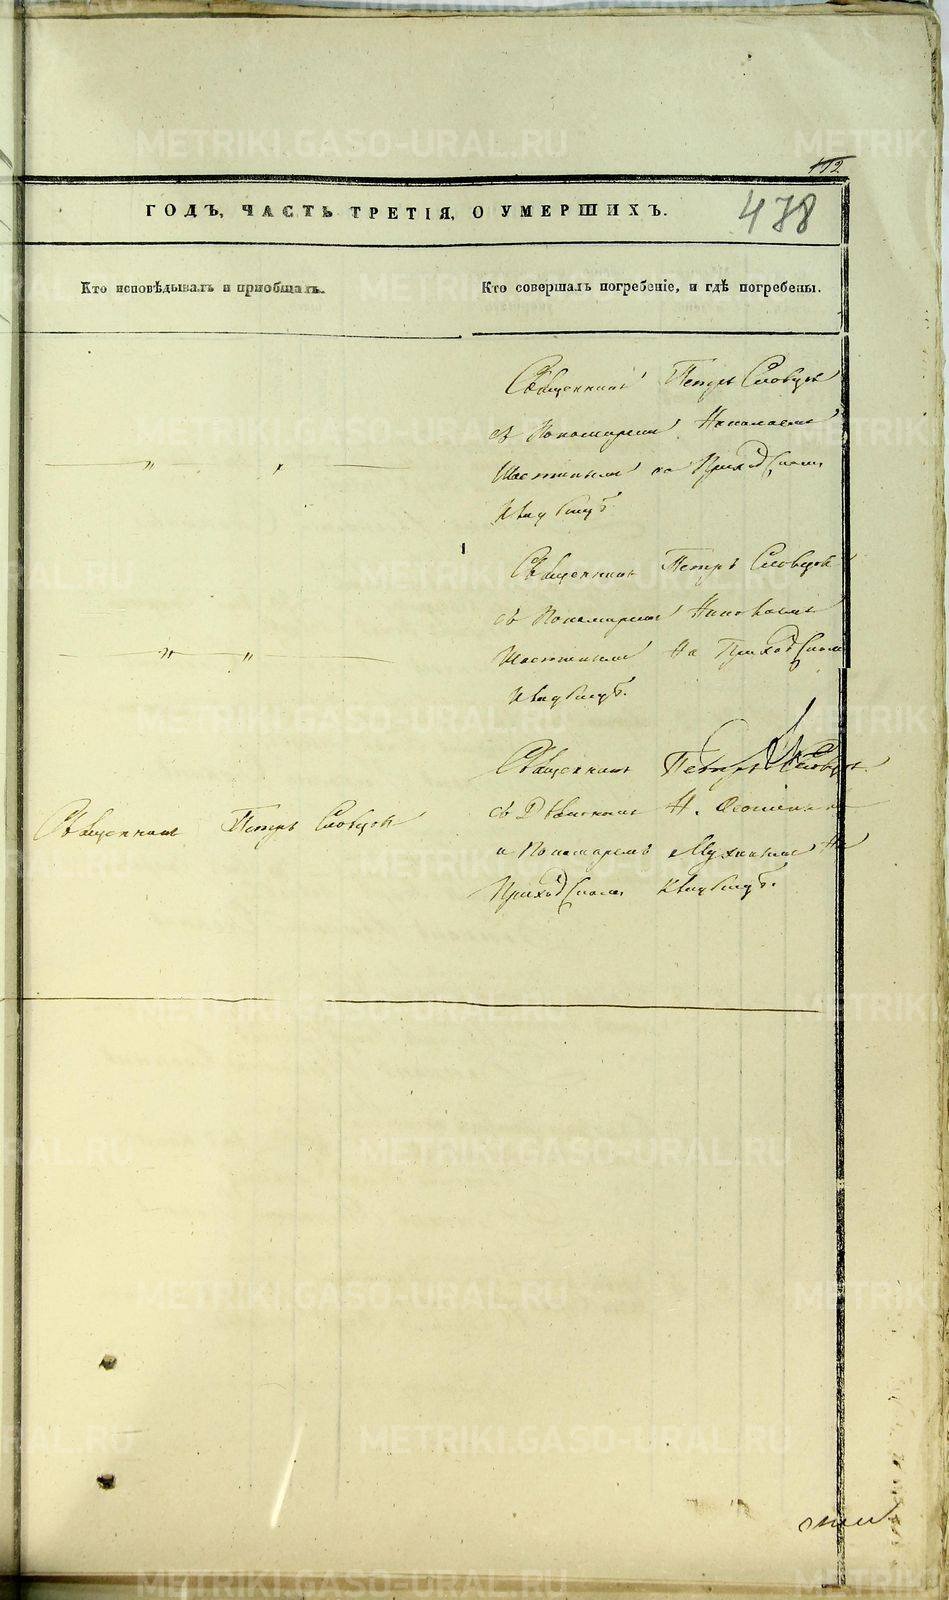 412
ГОДЪ, ЧАСТЬ ТРЕТІЯ, О УМЕРШИХЪ.
478
Кто исповѣдывалъ и пріобщалъ.
Кто совершалъ погребеніе, и гдѣ погребены.
Священникъ Петръ Словцовъ
съ Пономаремъ Николаемъ
на Приходскомъ
Кладбищѣ
Священникъ Петръ Словцов
съ Пономаремъ
На Приходском
Кладбищѣ.
Священникъ Петръ Словцов
Священникъ Петръ Словцов
съ Діакономъ Н.
и Пономаремъ Мухинымъ На
Приходскомъ Кладбищѣ.
METRIKI.GASO-URAL.RU